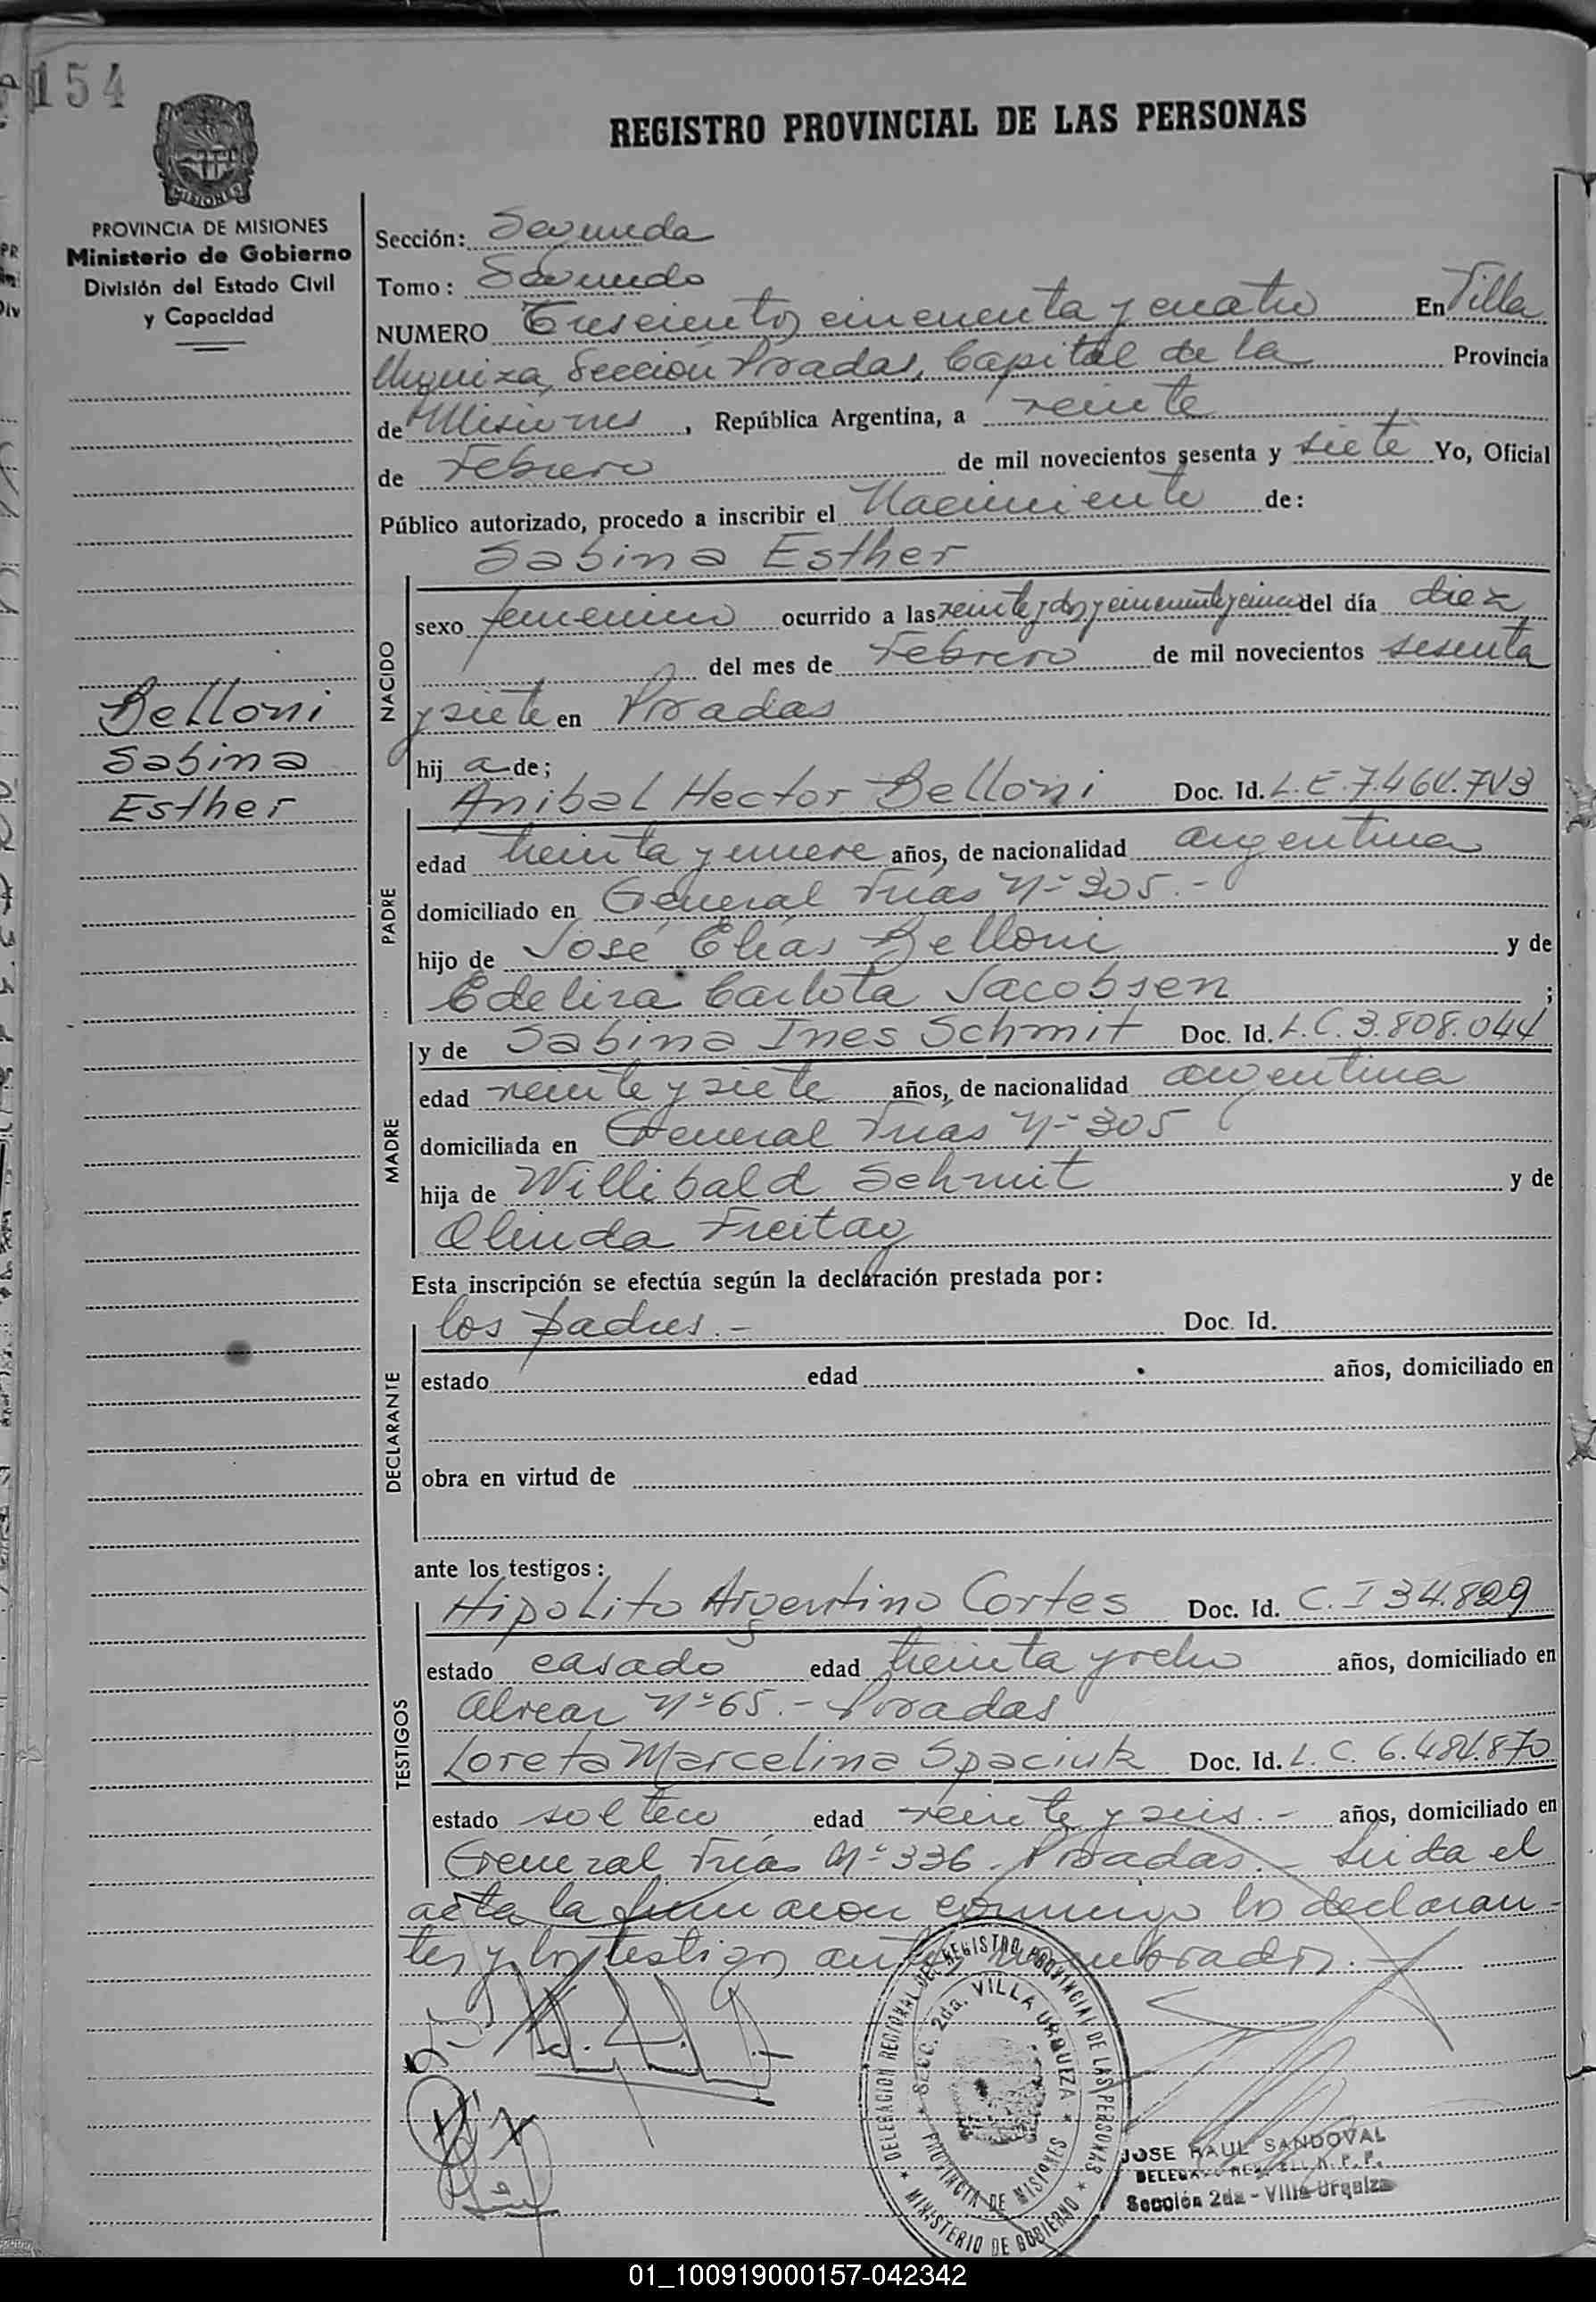 154
REGISTRO PROVINCIAL DE LAS PERSONAS
MISIONES
PROVINCIA DE MISIONES
Ministerio de Gobierno
División del Estado Civil
y Capacidad
Sección: Segunda
Tomo: Segundo
NUMERO Trescientos cincuenta y cuatro En Villa
Urquiza, Sección Posadas, Capital de la Provincia
de Misiones, República Argentina, a veinte
de Febrero de mil novecientos sesenta y siete Yo, Oficial
Público autorizado, procedo a inscribir el Nacimiento de:
Sabina Esther
NACIDO
sexo femenino ocurrido a las veinte y dos y cincuenta y cinco del día diez
del mes de Febrero de mil novecientos sesenta
y siete en Posadas
hij a de;
Belloni
Sabina
Esther
Anibal Hector Belloni Doc. Id. L.E. 7.464.743
PADRE
edad treinta y nueve años, de nacionalidad argentina
domiciliado en General Frías Nº 305.-
hijo de José Elías Belloni y de
Edelira Carlota Jacobsen ;
y de Sabina Ines Schmit Doc. Id. L.C. 3.808.044
MADRE
edad veinte y siete años, de nacionalidad argentina
domiciliada en General Frías Nº 305
hija de Willibald Schmit y de
Olinda Freitag
Esta inscripción se efectúa según la declaración prestada por:
los padres.- Doc. Id.
DECLARANTE
estado edad años, domiciliado en
obra en virtud de
ante los testigos:
Hipolito Argentino Cortes Doc. Id. C.I 34.829
TESTIGOS
estado casado edad treinta y ocho años, domiciliado en
Alvear Nº 65.- Posadas
Loreta Marcelina Spaciuk Doc. Id. L.C. 6.484.870
estado soltera edad veinte y seis.- años, domiciliado en
General Frías Nº 336. Posadas.- Leída el
acta la firmaron conmigo los declaran-
tes y los testigos antes nombrados.-
DELEGACION REGIONAL DEL REGISTRO PROVINCIAL DE LAS PERSONAS
SECC. 2da. VILLA URQUIZA
PROVINCIA DE MISIONES
MINISTERIO DE GOBIERNO
JOSE RAUL SANDOVAL
R. P. P.
Sección 2da - Villa Urquiza
01_100919000157-042342